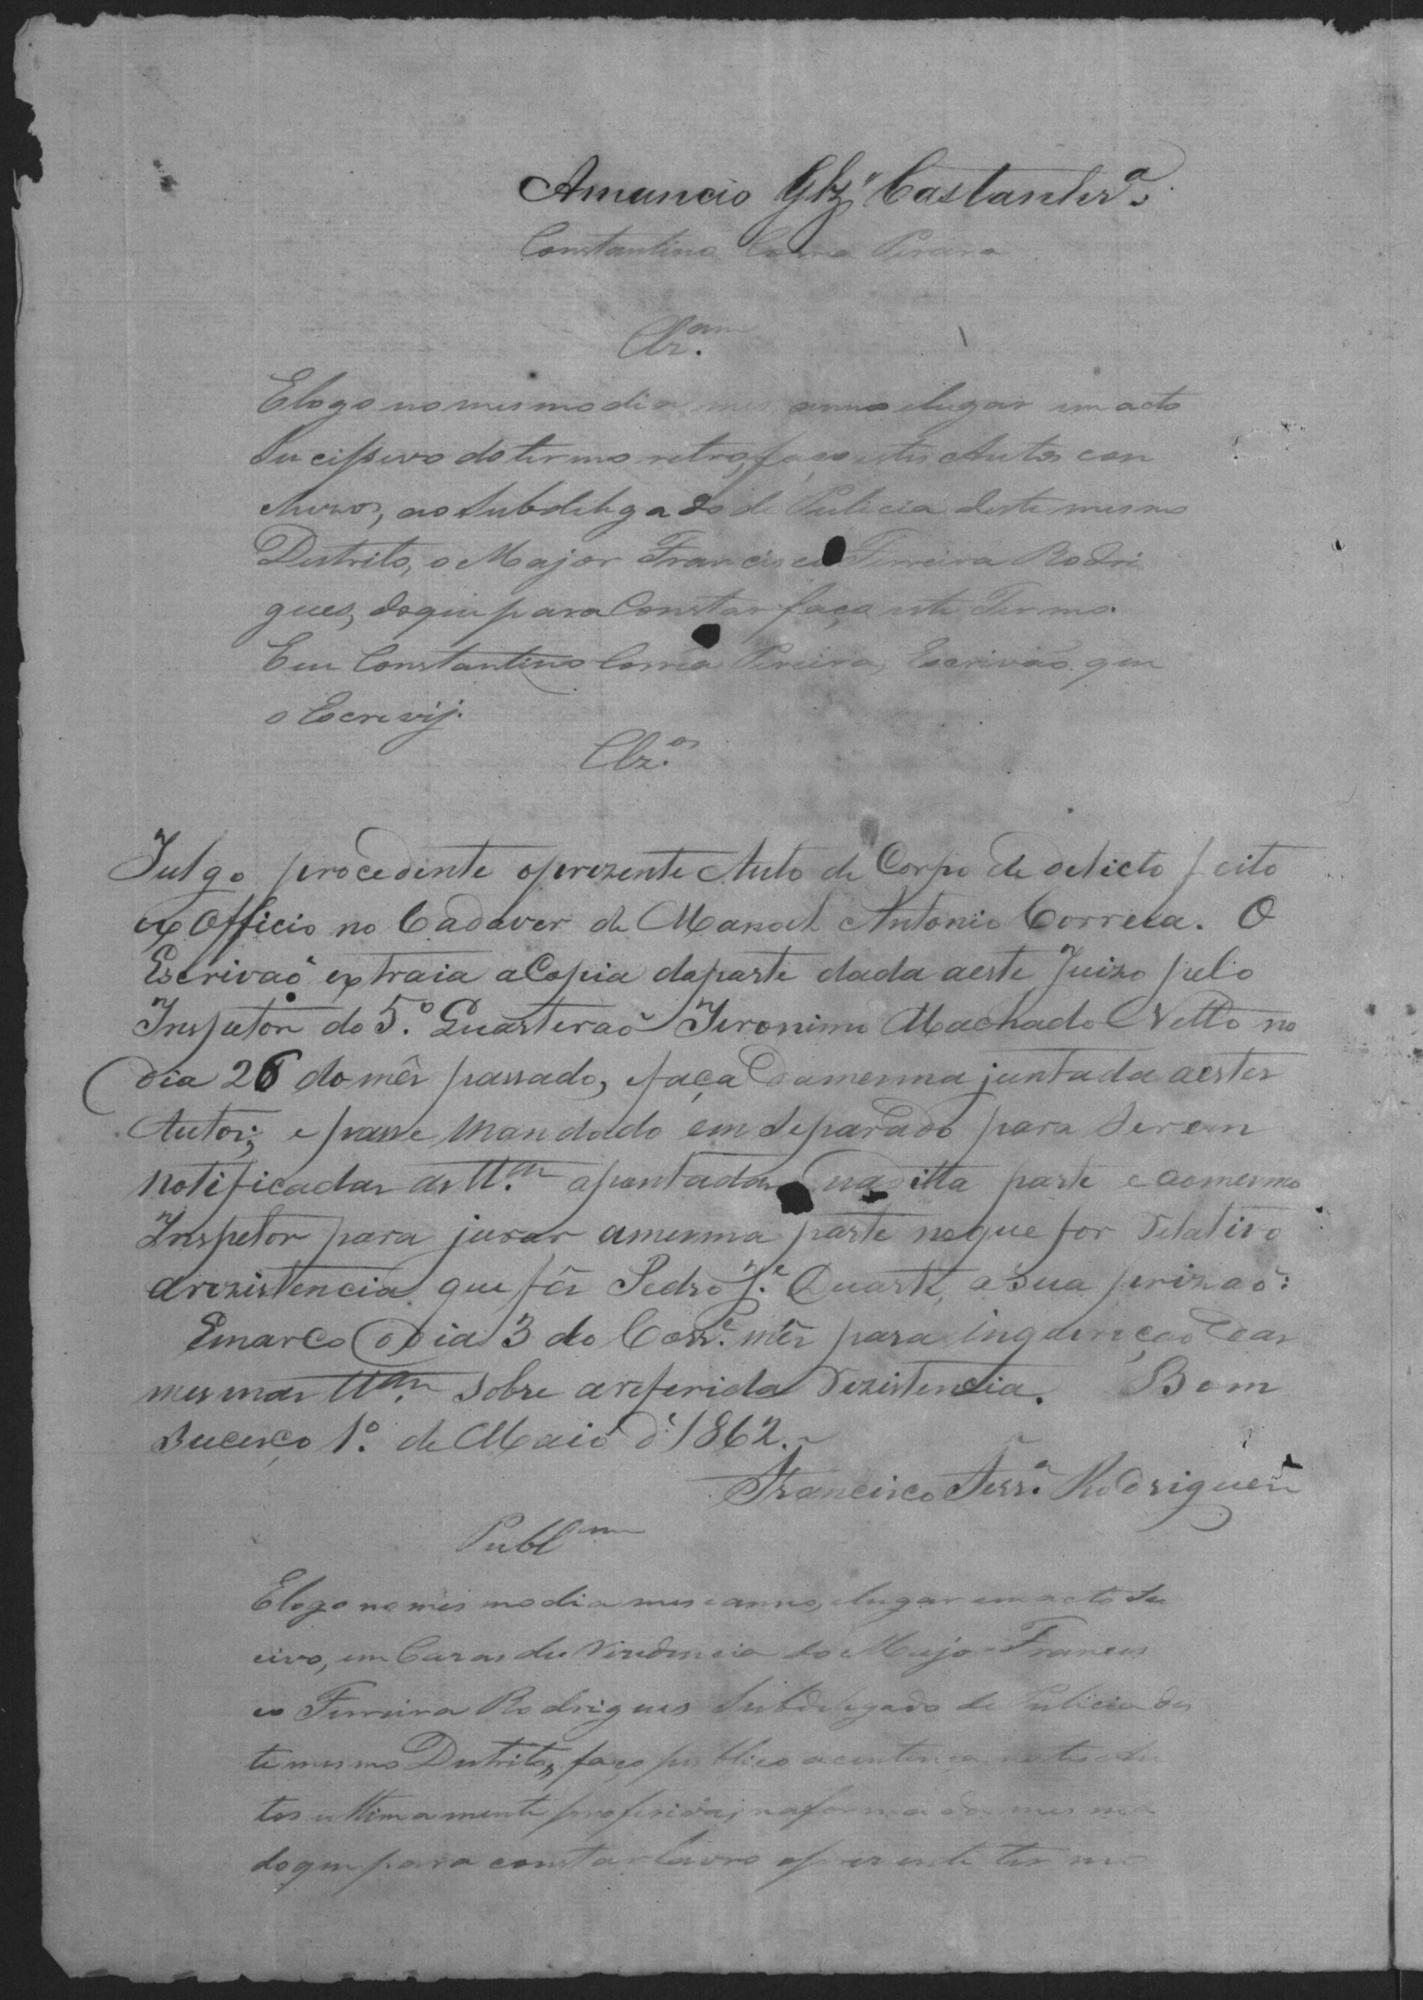 Amancio Glz' Castanhr.ª
Constantino Correa Pereira
Clz.am
E logo no mesmo dia mes anno elugar em acto
Sucissivo do termo retro, faço estes Autos con
cluzos, ao Subdellegado de Pulicia deste mesmo
Destrito, o Major Francisco Ferreira Rodri
gues, doque para Constar faço este Termo.
Eu Constantino Correa Pereira, Escrivão que
o Escrevij.
Clz.os
Julgo procedente oprezente Auto de Corpo de delicto feito
ex Officio no Cadaver de Manoel Antonio Correia. O
Escrivaõ extraia aCopia daparte dada aeste Juizo pelo
Inspetor do 5.º Quarteraõ Jeronimo Machado Netto no
dia 26 do mês passado, efaça damesma juntada aestes
Autos; e passe Mandado em Separado para Serem
notificadas as tt.as apontadas na ditta parte e aomesmo
Inspetor para jurar amesma parte noque for relativo
arezistencia que fês Pedro J.e Duarte, a Sua prizaõ:
Emarco o dia 3 do Corr.e mês para inquirição das
mesmas tt.as Sobre areferida rezistencia. Bom
Sucesço 1.º de Maio d'1862.
Francisco Ferr.ª Rodrigues
Publ.am
E logo no mesmo dia mes eanno, elugar em acto Su
civo, em Cazas de rezidencia do Major Francis
co Ferreira Rodrigues Subdelegado de Pulicia des
te mesmo Destrito, faço publico acentença nestes Au
tos ultimamente proferida, naforma da mesma
doque para constar lavro oprezente termo